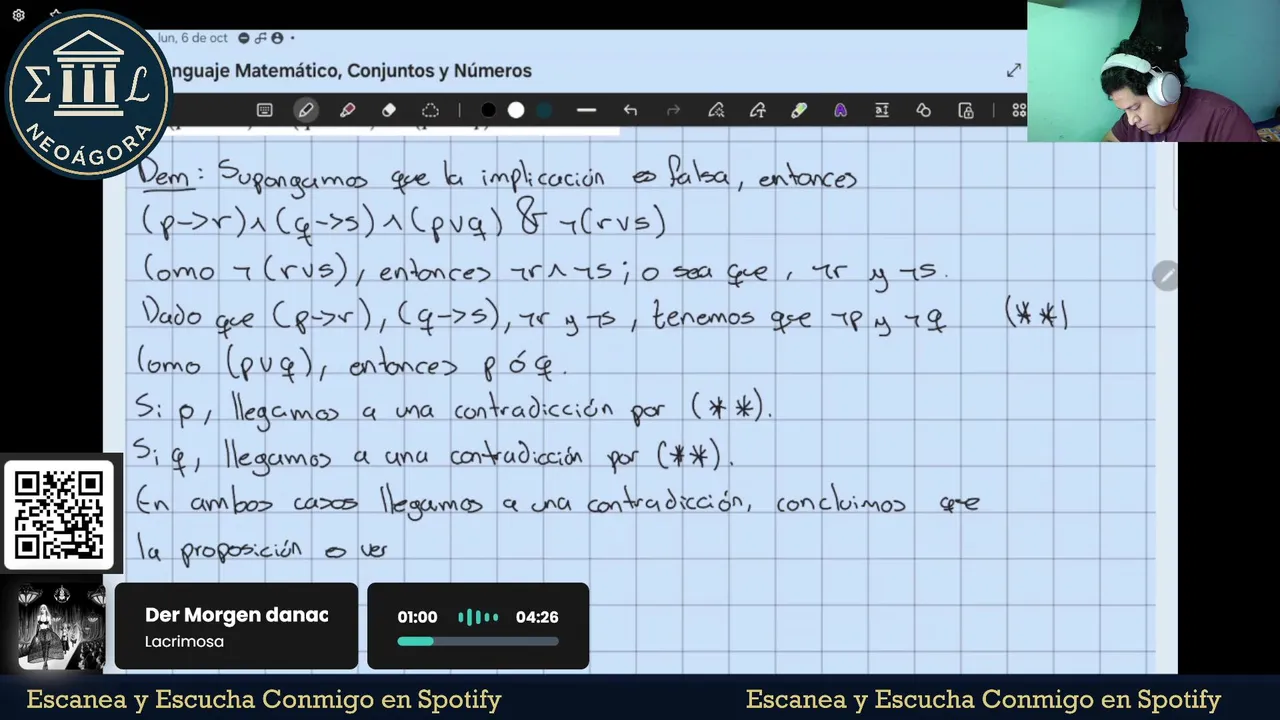 lun, 6 de oct
nguaje Matemático, Conjuntos y Números
Σ ℒ
NEOÁGORA
Dem: Supongamos que la implicación es falsa, entonces
(p->r)∧(q->s)∧(p∨q) & ¬(r∨s)
Como ¬(r∨s), entonces ¬r∧¬s; o sea que, ¬r y ¬s.
Dado que (p->r), (q->s), ¬r y ¬s, tenemos que ¬p y ¬q (**)
Como (p∨q), entonces p ó q.
Si p, llegamos a una contradicción por (**).
Si q, llegamos a una contradicción por (**).
En ambos casos llegamos a una contradicción, concluimos que
la proposición es ver
Der Morgen danac
Lacrimosa
01:00 04:26
Escanea y Escucha Conmigo en Spotify Escanea y Escucha Conmigo en Spotify